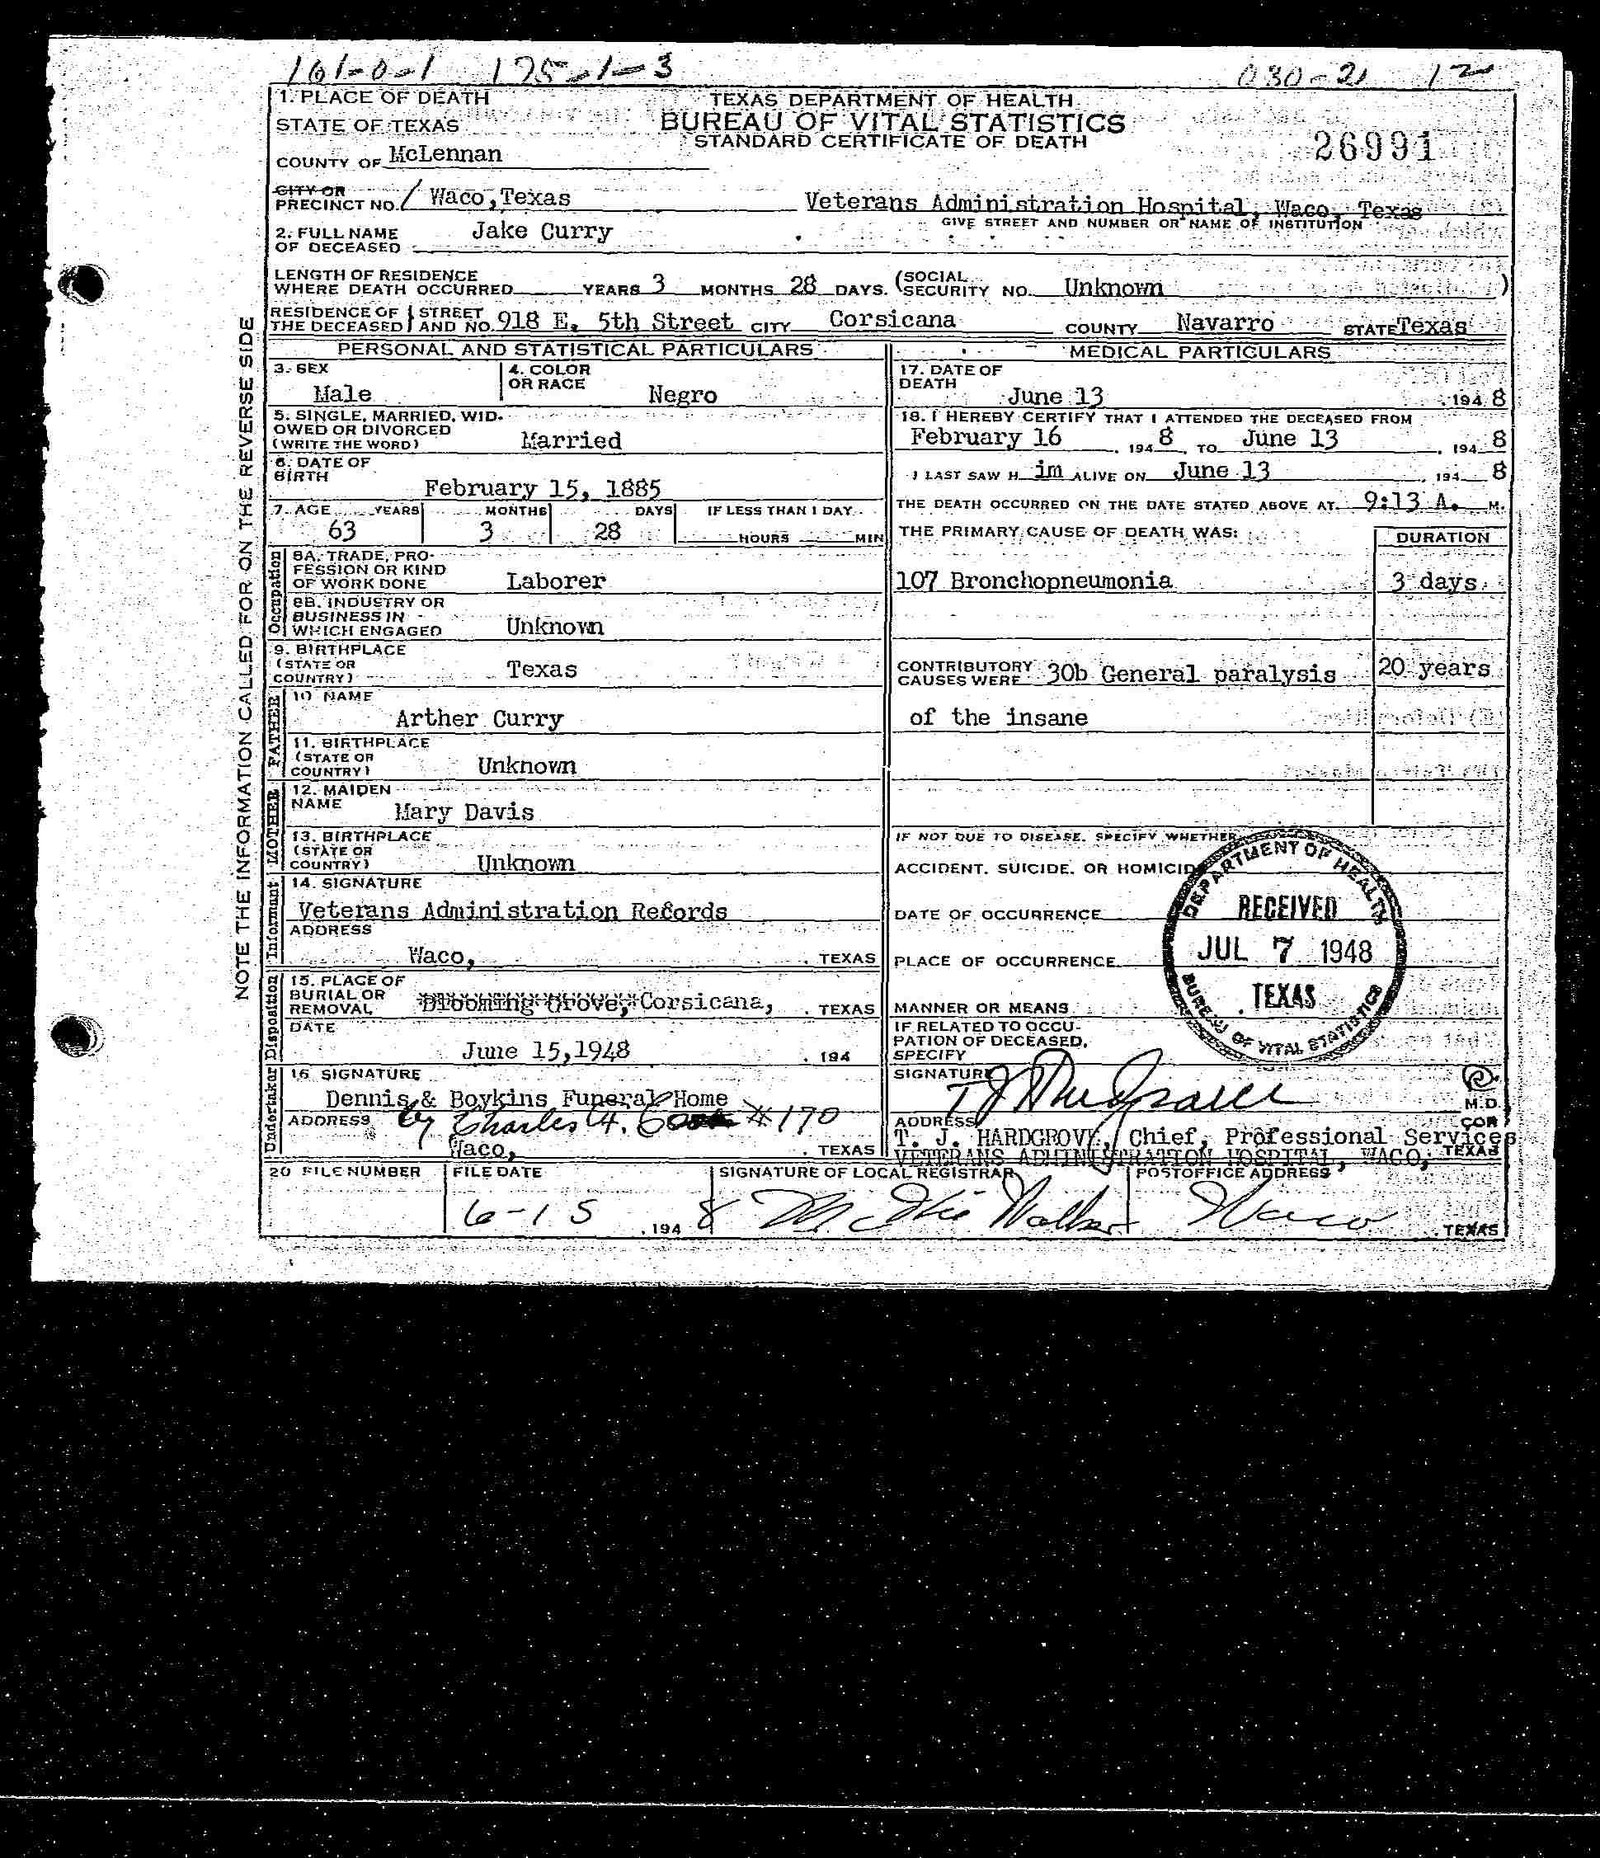 101-0-1 175-1-3 030-21 12
1. PLACE OF DEATH
STATE OF TEXAS
COUNTY OF McLennan
TEXAS DEPARTMENT OF HEALTH
BUREAU OF VITAL STATISTICS
STANDARD CERTIFICATE OF DEATH
26991
CITY OR
PRECINCT NO. 1 Waco, Texas Veterans Administration Hospital, Waco, Texas
GIVE STREET AND NUMBER OR NAME OF INSTITUTION
2. FULL NAME
OF DECEASED Jake Curry
LENGTH OF RESIDENCE
WHERE DEATH OCCURRED YEARS 3 MONTHS 28 DAYS. (SOCIAL SECURITY NO. Unknown )
RESIDENCE OF THE DECEASED STREET AND NO. 918 E. 5th Street CITY Corsicana COUNTY Navarro STATE Texas
PERSONAL AND STATISTICAL PARTICULARS
3. SEX Male
4. COLOR OR RACE Negro
5. SINGLE, MARRIED, WID-
OWED OR DIVORCED
(WRITE THE WORD) Married
6. DATE OF
BIRTH February 15, 1885
7. AGE YEARS MONTHS DAYS IF LESS THAN 1 DAY
63 3 28 HOURS MIN
Occupation
8A. TRADE, PRO-
FESSION OR KIND
OF WORK DONE Laborer
8B. INDUSTRY OR
BUSINESS IN
WHICH ENGAGED Unknown
9. BIRTHPLACE
(STATE OR
COUNTRY) Texas
FATHER
10 NAME
Arther Curry
11. BIRTHPLACE
(STATE OR
COUNTRY) Unknown
MOTHER
12. MAIDEN
NAME Mary Davis
13. BIRTHPLACE
(STATE OR
COUNTRY) Unknown
Informant
14. SIGNATURE
Veterans Administration Records
ADDRESS
Waco, TEXAS
Disposition
15. PLACE OF
BURIAL OR
REMOVAL Blooming Grove, Corsicana, TEXAS
DATE
June 15,1948 . 194
Undertaker
16 SIGNATURE
Dennis & Boykins Funeral Home
ADDRESS by Charles H. #170
Waco, TEXAS
MEDICAL PARTICULARS
17. DATE OF
DEATH June 13 , 194 8
18. I HEREBY CERTIFY THAT I ATTENDED THE DECEASED FROM
February 16 , 194 8 , TO June 13 , 194 8
I LAST SAW H im ALIVE ON June 13 , 194 8
THE DEATH OCCURRED ON THE DATE STATED ABOVE AT 9:13 A. M.
THE PRIMARY CAUSE OF DEATH WAS: DURATION
107 Bronchopneumonia 3 days
CONTRIBUTORY
CAUSES WERE 30b General paralysis 20 years
of the insane
IF NOT DUE TO DISEASE, SPECIFY WHETHER
ACCIDENT, SUICIDE, OR HOMICID
DATE OF OCCURRENCE
PLACE OF OCCURRENCE
MANNER OR MEANS
IF RELATED TO OCCU-
PATION OF DECEASED,
SPECIFY
DEPARTMENT OF HEALTH
RECEIVED
JUL 7 1948
TEXAS
BUREAU OF VITAL STATISTICS
SIGNATURE M.D.
ADDRESS
COR
T. J. HARDGROVE, Chief, Professional Services
VETERANS ADMINISTRATION HOSPITAL, WACO, TEXAS
20 FILE NUMBER FILE DATE SIGNATURE OF LOCAL REGISTRAR POSTOFFICE ADDRESS
6-15 , 194 8 Walker Waco , TEXAS
NOTE THE INFORMATION CALLED FOR ON THE REVERSE SIDE